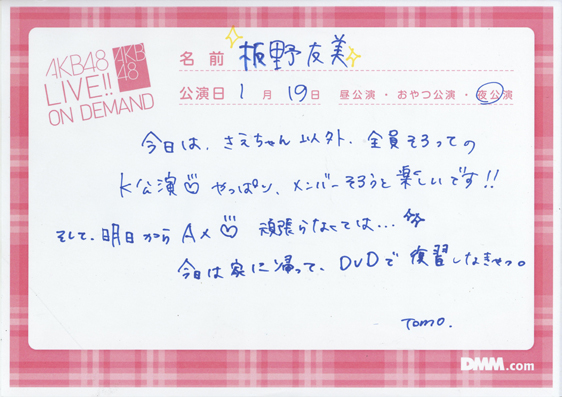 AKB48
LIVE!!
ON DEMAND
AKB
48
名前 板野友美
公演日 1月 19日 昼公演・おやつ公演・夜公演
今日は、さえちゃん以外、全員そろっての
K公演♡ やっぱり、メンバーそろうと楽しいです!!
そして、明日からAX♡ 頑張らなくては...
今日は家に帰って、DVDで復習しなきゃっ。
Tomo.
DMM.com